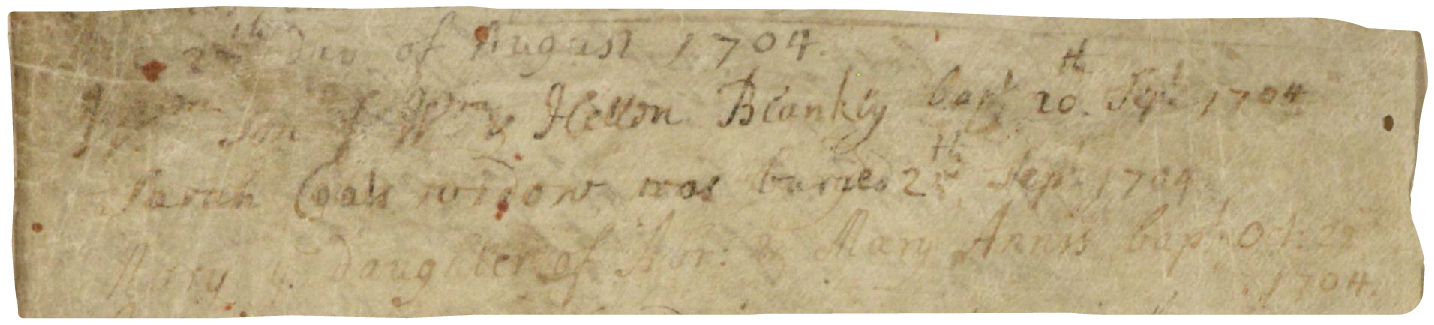 2th Day of August 1704.
Wm son of Wm & Hellen Blankly bapt 20th. Sept 1704
Sarah Coals widow was buryed 25th Sepr 1704
Mary ye Daughter of & Mary Annis bapt: Oct: 22
1704.